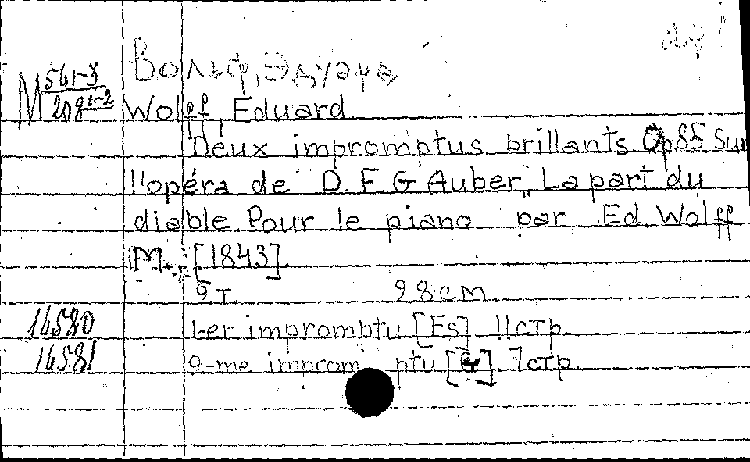 Вольф, Эдуард
М 561-3/208 1-2
Wolff, Eduard
Deux impromptus brillants Op 85 Sur
l'opéra de D F G Auber „La part du
diable Pour le piano par Ed Wolff
M., [1843]
2 т 28 см
16580 1-er impromptu [Es] 11 стр
16581 2-me impromptu [G] 7 стр